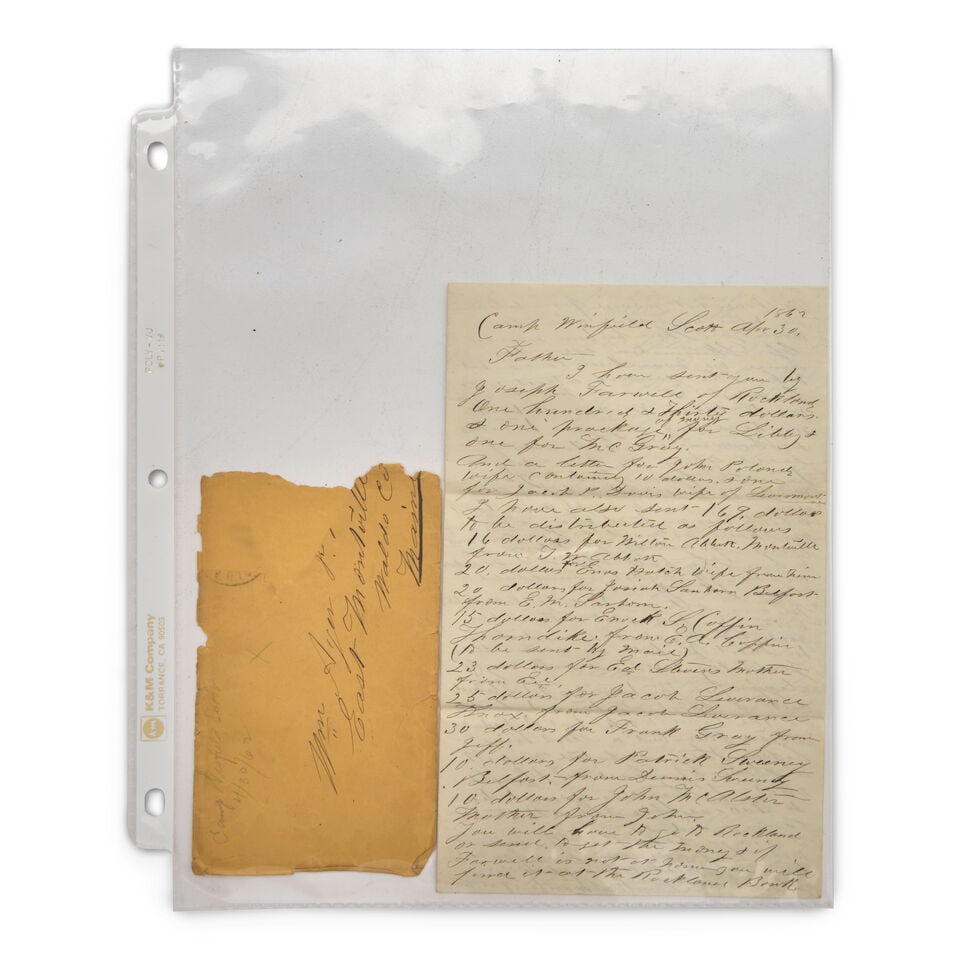 1862
Camp Winfield Scott Apr 30.
Father
I have sent you by
Joseph Farwell of Rockland
One hundred & thirty dollars
of money
& one package for Libby &
one for McGray.
And a letter for John Polands
wife containing 10 dollars, & one
for Jacob P. Davis wife of
I have also sent 169. dollars
to be distributed as follows
16 dollars for Milton Abbott, Montville
from T. W. Abbott
20. dollars for Enos Hatch Wife from him
20 dollars for Josiah Sanborn Belfast
from E. M. Sanborn.
15 dollars for Enoch S. Coffin
Thorndike. from E. A. Coffin
(to be sent by mail)
23 dollars for Ed Stevens Mother
from Ed
25 dollars for Jacob Leverance
Knox. from Jacob Leverance
30 dollars for Frank Gray from
Jeff.
10 dollars for Patrick Sweeney
Belfast. from Dennis Sweeney
10 dollars for John McAlster
Mother from John.
You will have to go to Rockland
or send to get the money & if
Farwell is not at home you will
find it at the Rockland Bank.
Wm
East Montville
Waldo Co
Maine
X
Camp Winfield Scott
4/30/62
K&M Company
TORRANCE, CA 90505
POLY-70